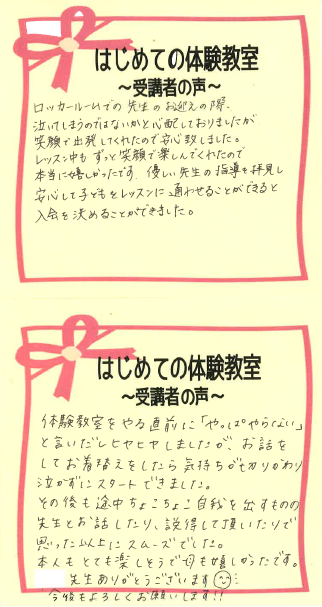 はじめての体験教室
～受講者の声～
ロッカールームでの先生のお迎えの際、
泣いてしまうのではないかと心配しておりましたが
笑顔で出発してくれたので安心致しました。
レッスン中もずっと笑顔で楽しんでくれたので
本当に嬉しかったです。優しい先生の指導も拝見し
安心して子どもをレッスンに通わせることができると
入会を決めることができました。
はじめての体験教室
～受講者の声～
体験教室をやる直前に「やっぱやらない」
と言いだしヒヤヒヤしましたが、お話を
してお着替えをしたら気持ちが切りかわり
泣かずにスタートできました。
その後も途中ちょこちょこ自我を出すものの
先生とお話したり、説得して頂いたりで
思った以上にスムーズでした。
本人もとても楽しそうで母も嬉しかったです。
先生ありがとうございます
今後もよろしくお願いします!!